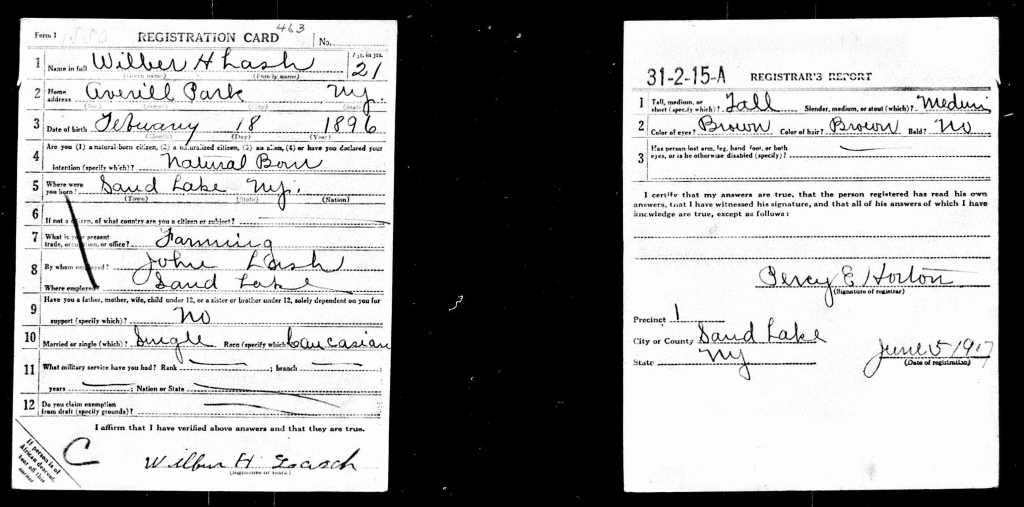 463
Form 1 REGISTRATION CARD No.
1 Name in full Wilber H Lash Age, in yrs. 21
(Given name) (Family name)
2 Home address Averill Park N.y.
(No.) (Street) (City) (State)
3 Date of birth Febuary 18 1896
(Month) (Day) (Year)
4 Are you (1) a natural-born citizen, (2) a naturalized citizen, (3) an alien, (4) or have you declared your
intention (specify which)? Natural Born
5 Where were you born? Sand Lake N.y.
(Town) (State) (Nation)
6 If not a citizen, of what country are you a citizen or subject?
7 What is your present trade, occupation, or office? Farming
8 By whom employed? John Lash
Where employed? Sand Lake
9 Have you a father, mother, wife, child under 12, or a sister or brother under 12, solely dependent on you for
support (specify which)? No
10 Married or single (which)? Single Race (specify which)? Caucasian
11 What military service have you had? Rank ; branch ;
years ; Nation or State
12 Do you claim exemption from draft (specify grounds)?
I affirm that I have verified above answers and that they are true.
C
Wilbur H Lasch
(Signature or mark)
If person is of
African descent,
tear off this
corner
31-2-15-A REGISTRAR'S REPORT
1 Tall, medium, or short (specify which)? Tall Slender, medium, or stout (which)? Medium
2 Color of eyes? Brown Color of hair? Brown Bald? No
3 Has person lost arm, leg, hand, foot, or both
eyes, or is he otherwise disabled (specify)?
I certify that my answers are true, that the person registered has read his own
answers, that I have witnessed his signature, and that all of his answers of which I have
knowledge are true, except as follows:
Percy E Horton
(Signature of registrar)
Precinct 1
City or County Sand Lake
State N.y.
June 5 1917
(Date of registration)